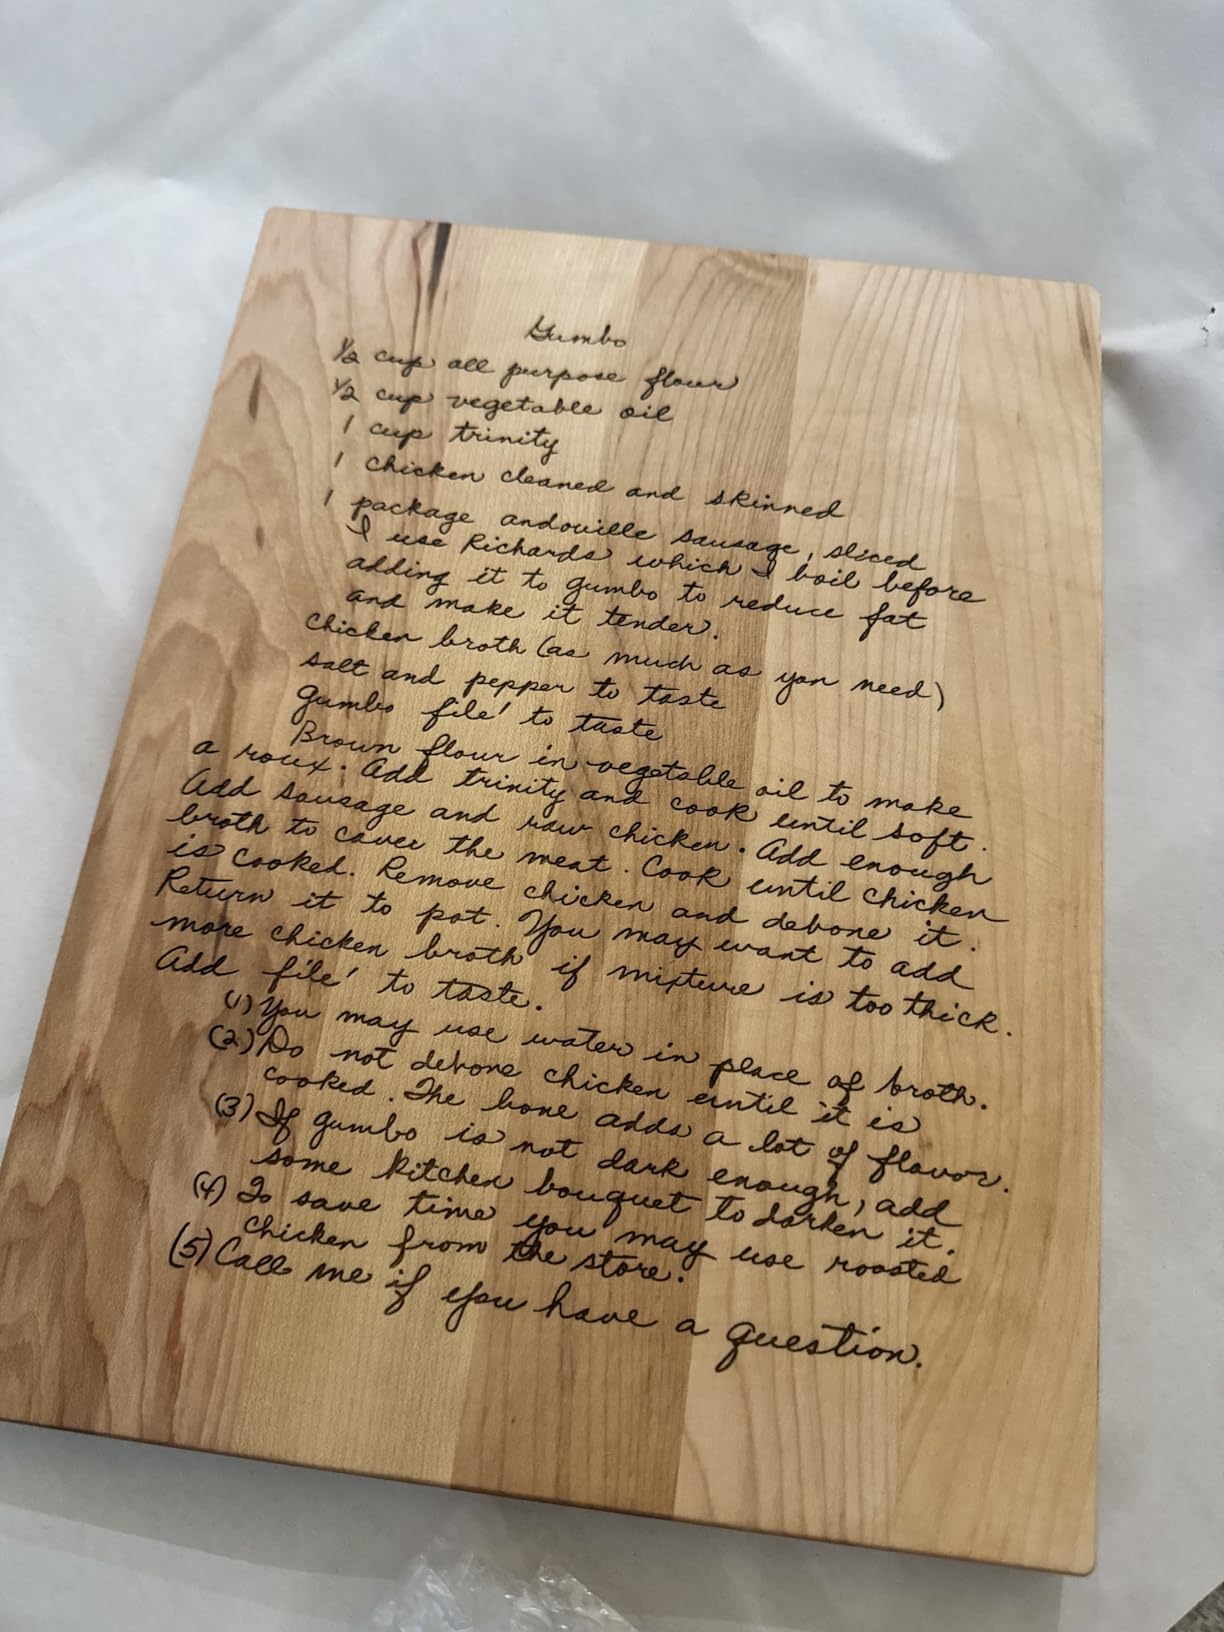 Gumbo
½ cup all purpose flour
½ cup vegetable oil
1 cup trinity
1 chicken cleaned and skinned
1 package andouille sausage, sliced
I use Richards which I boil before
adding it to gumbo to reduce fat
and make it tender.
chicken broth (as much as you need)
salt and pepper to taste
gumbo file' to taste
Brown flour in vegetable oil to make
a roux. Add trinity and cook until soft.
Add sausage and raw chicken. Add enough
broth to cover the meat. Cook until chicken
is cooked. Remove chicken and debone it.
Return it to pot. You may want to add
more chicken broth if mixture is too thick.
Add file' to taste.
(1) You may use water in place of broth.
(2) Do not debone chicken until it is
cooked. The bone adds a lot of flavor.
(3) If gumbo is not dark enough, add
some kitchen bouquet to darken it.
(4) To save time you may use roasted
chicken from the store.
(5) Call me if you have a question.